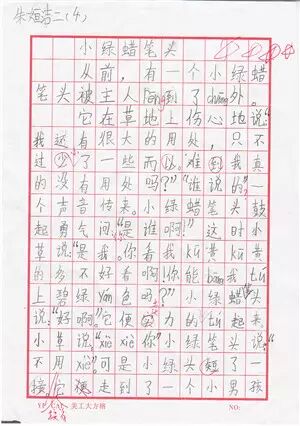 朱姮洁二(4)
小绿蜡笔头
从前，有一个小绿蜡
笔头被主人倒了chuāng外。
它在草地上伤心地说：“
我还有很大的用处，只不
过少了一些而以。难到我真
的没有用处吗？”“谁说的”一
个声音传来。小绿蜡笔头鼓
起勇气问：“是谁啊？”这时小
草说：“是我。你看我kū黄kū黄
的多不好看啊！你能bāng我tú
上碧绿yán色吗？”“小绿蜡头
说：“好啊。”它便力的tú起来，
小草说：“xiè xiè你”小绿蜡笔头说：“
不用xiè”可是小绿头短了一
接。它便走到了一个小男孩
美工大方格
NO: